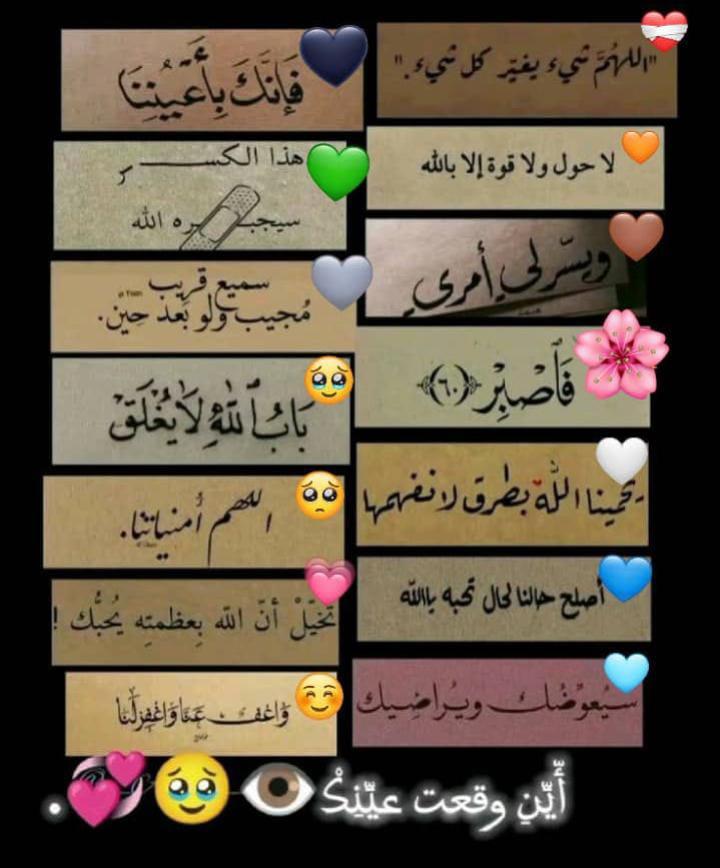 "اللهُمَّ شيء يغيّر كل شيء."
فَإِنَّكَ بِأَعْيُنِنَا
لا حول ولا قوة إلا بالله
هذا الكســـــر
سيجبره الله
ويسّر لي أمري
سميع قريب
مُجيب ولو بعد حين.
فَٱصْبِرْ ﴿٦٠﴾
بَابُ ٱللَّهِ لَا يُغْلَقْ
يحمينا اللّه بطرق لا نفهمها
اللهم أُمنياتنا.
أصلح حالنا لحال تحبه ياالله
تخيّلْ أنّ الله بِعظمتِه يُحبُّك !
سيُعوّضُك ويُراضيك
وَاعْفُ عَنَّا وَاغْفِرْ لَنَا
أَيّنِ وقعت عيّنِكْ